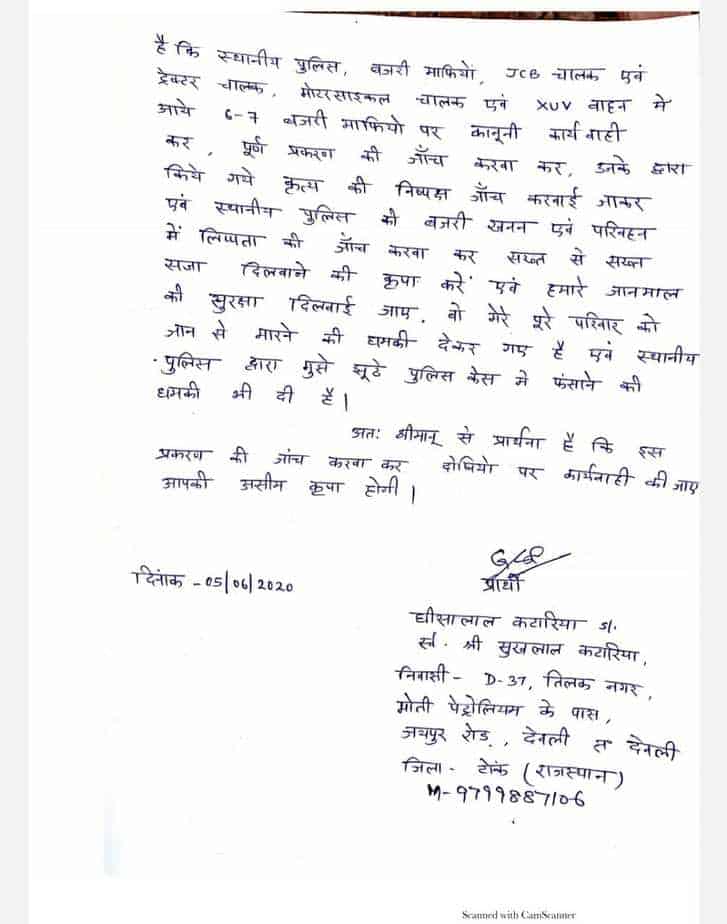 है कि स्थानीय पुलिस, बजरी माफियो, JCB चालक एवं
ट्रेक्टर चालक, मोटरसाइकल चालक एवं XUV वाहन मे
आये 6-7 बजरी माफियो पर कानूनी कार्यवाही
कर, पूर्ण प्रकरण की जाँच करवा कर, उनके द्वारा
किये गये कृत्य की निष्पक्ष जाँच करवाई जाकर
एवं स्थानीय पुलिस की बजरी खनन एवं परिवहन
में लिप्तता की जाँच करवा कर सख्त से सख्त
सजा दिलवाने की कृपा करें एवं हमारे जानमाल
की सुरक्षा दिलवाई जाए. वो मेरे पूरे परिवार को
जान से मारने की धमकी देकर गए है एवं स्थानीय
पुलिस द्वारा मुझे झूटे पुलिस केस मे फंसाने की
धमकी भी दी है।
अतः श्रीमान् से प्रार्थना है कि इस
प्रकरण की जांच करवा कर दोषियो पर कार्यवाही की जाए
आपकी असीम कृपा होगी।
दिनांक - 05/06/2020
प्रार्थी
घीसालाल कटारिया s/.
स्व. श्री सुखलाल कटारिया,
निवासी - D-37, तिलक नगर,
मोती पेट्रोलियम के पास,
जयपुर रोड, देवली त देवली
जिला - टोंक (राजस्थान)
M-9799887106
Scanned with CamScanner